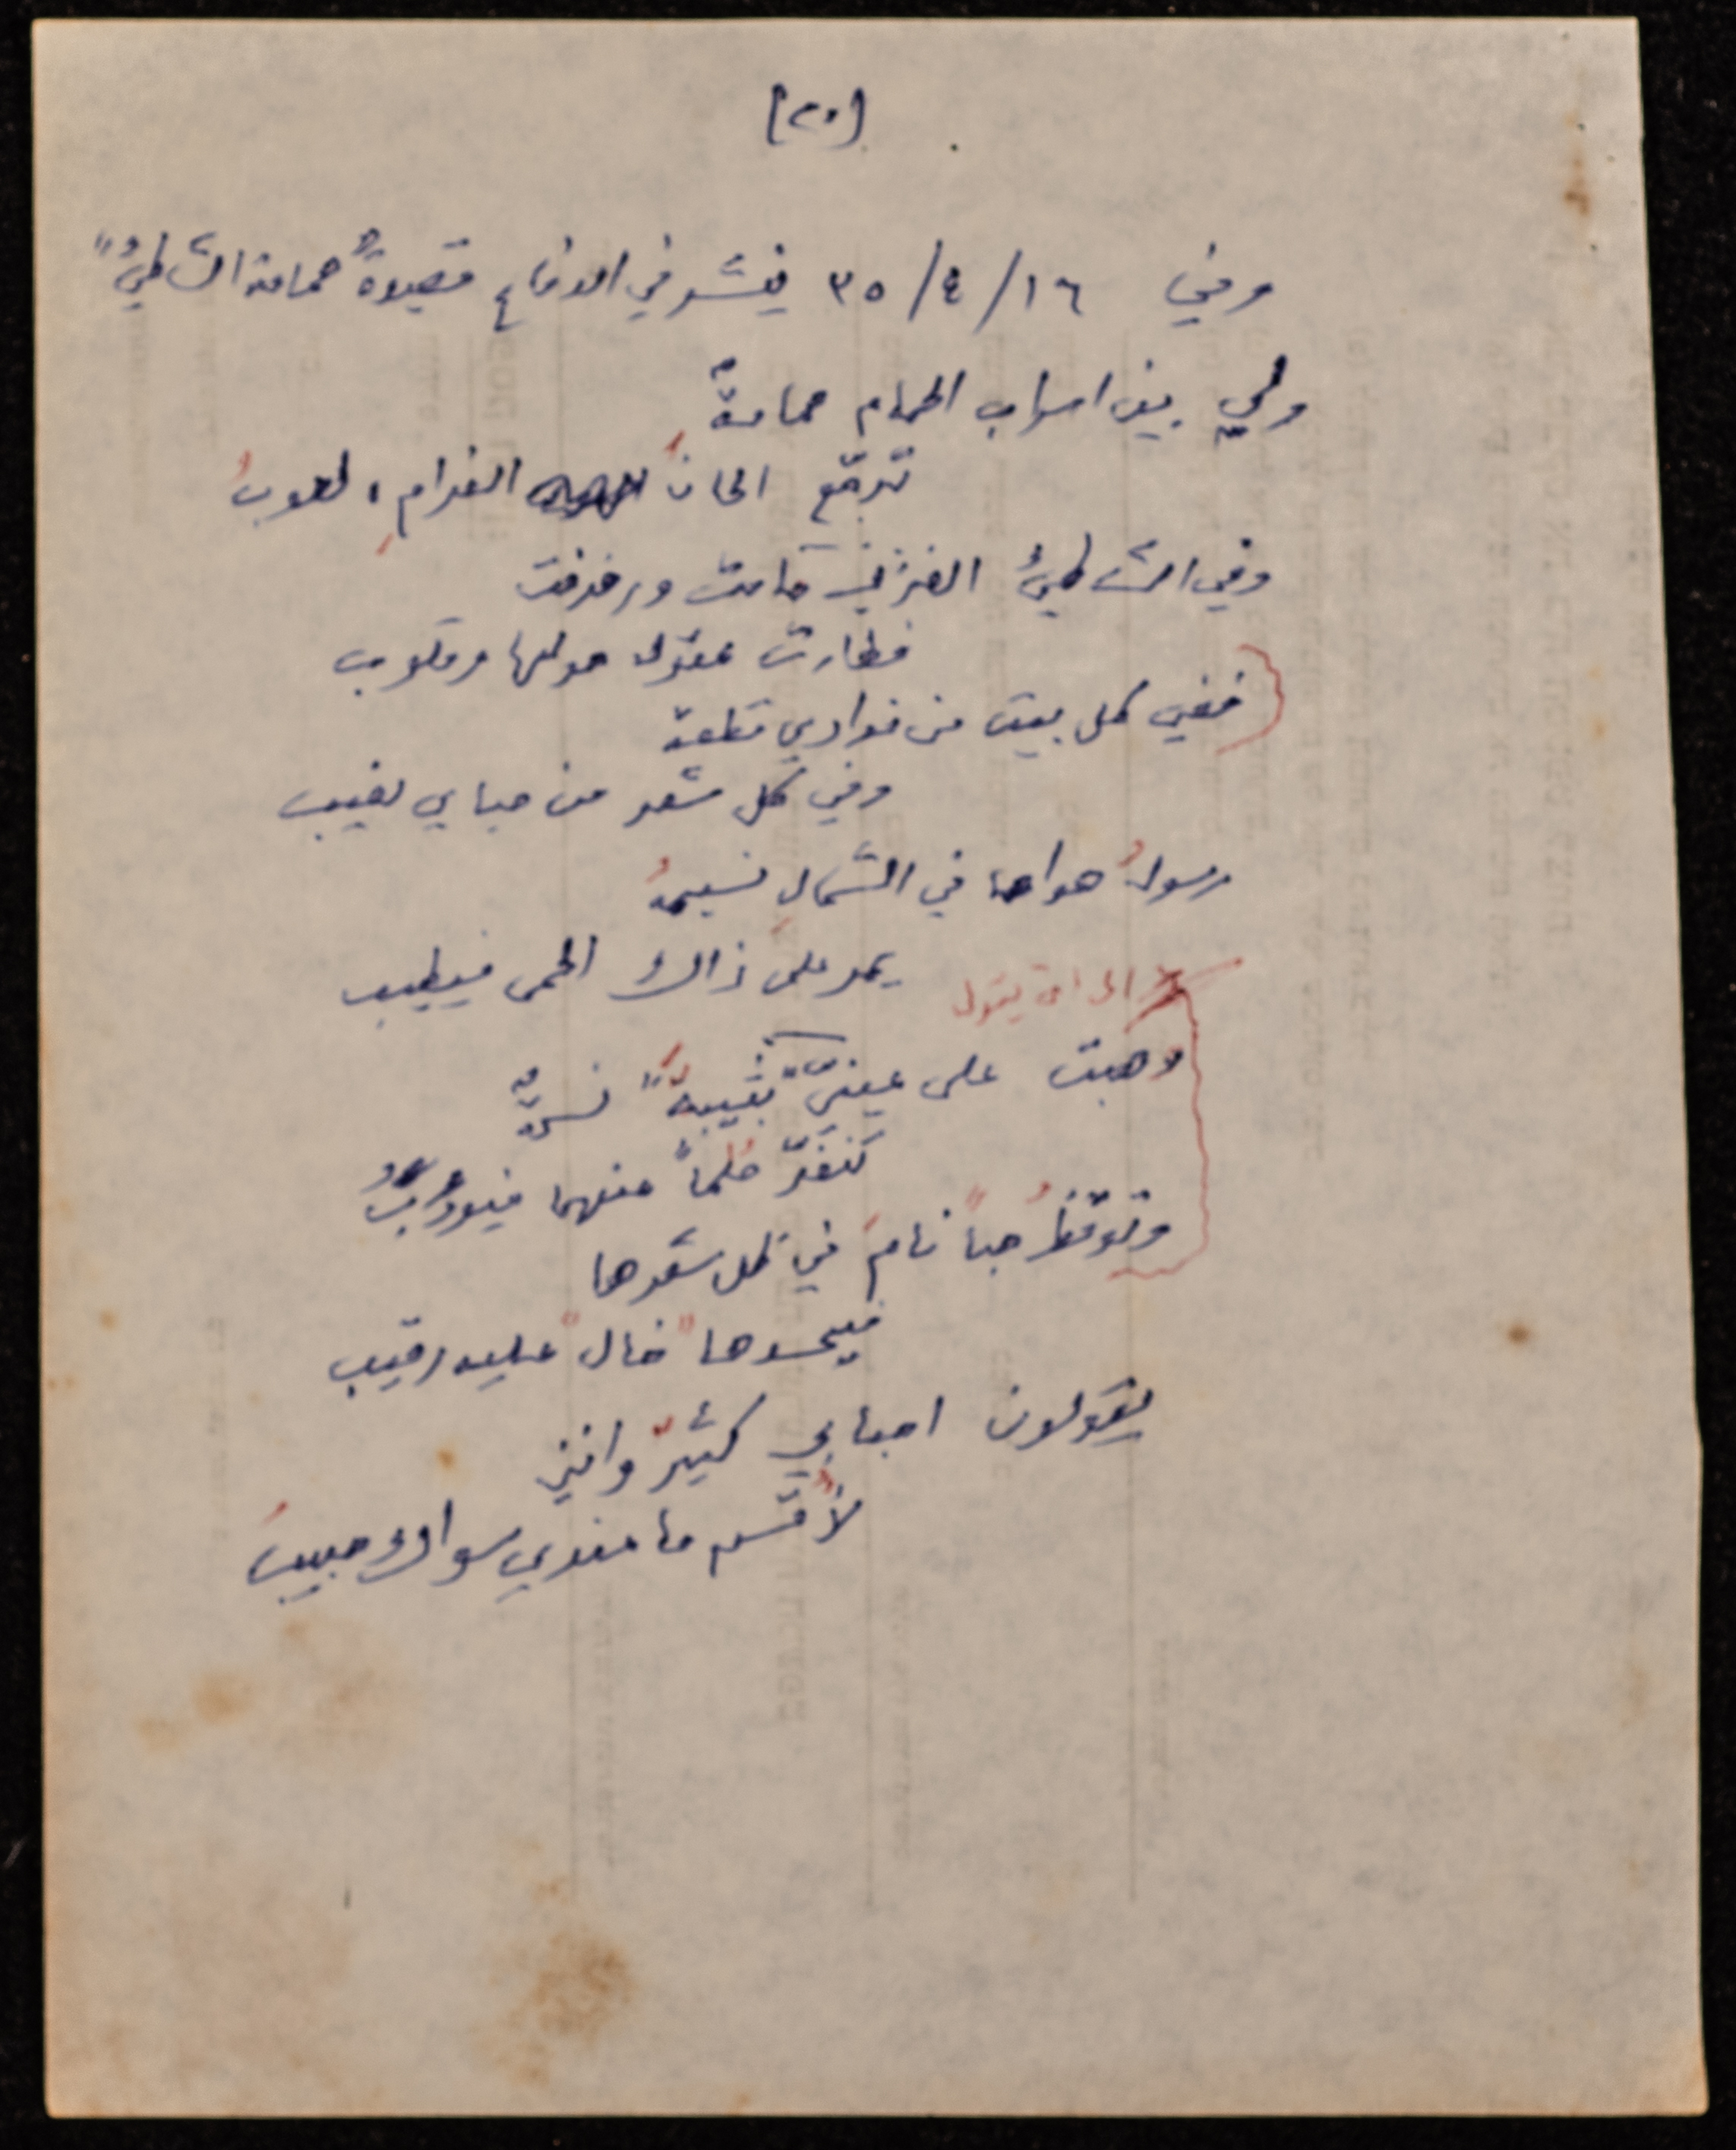 [٢٠]
وفي ١٦/٤/٣٥ ينشر في الدفاع قصيدة "حمامة الشاطئ"
ولي بين اسراب الحمام حمامةٌ
ترجّع الحانَ الغرامِ، لعوبُ
وفي الشاطئ الغزّيِّ حامت ورفرفت
فطارت عقول حولها وقلوب
ففي كل بيت من فوادي قطعة
وفي كل شعر من صباي نصيب
رسولُ هواها في الشمالِ نسيمهُ
يمر على ذاك الحمى فيطيب
الى ان يقول
وهبت على عينيّ "بثينةَ" نسمةٌ
تنفّرُ حُلماً عنهما فيؤوبُ
وتوقظُ حباً نامَ في ظل شعرها
فيحسدها "خال" عليه رقيب
يقولون احبابي كثيرٌ وانني
لأُقسم ما عندي سواك حبيبُ